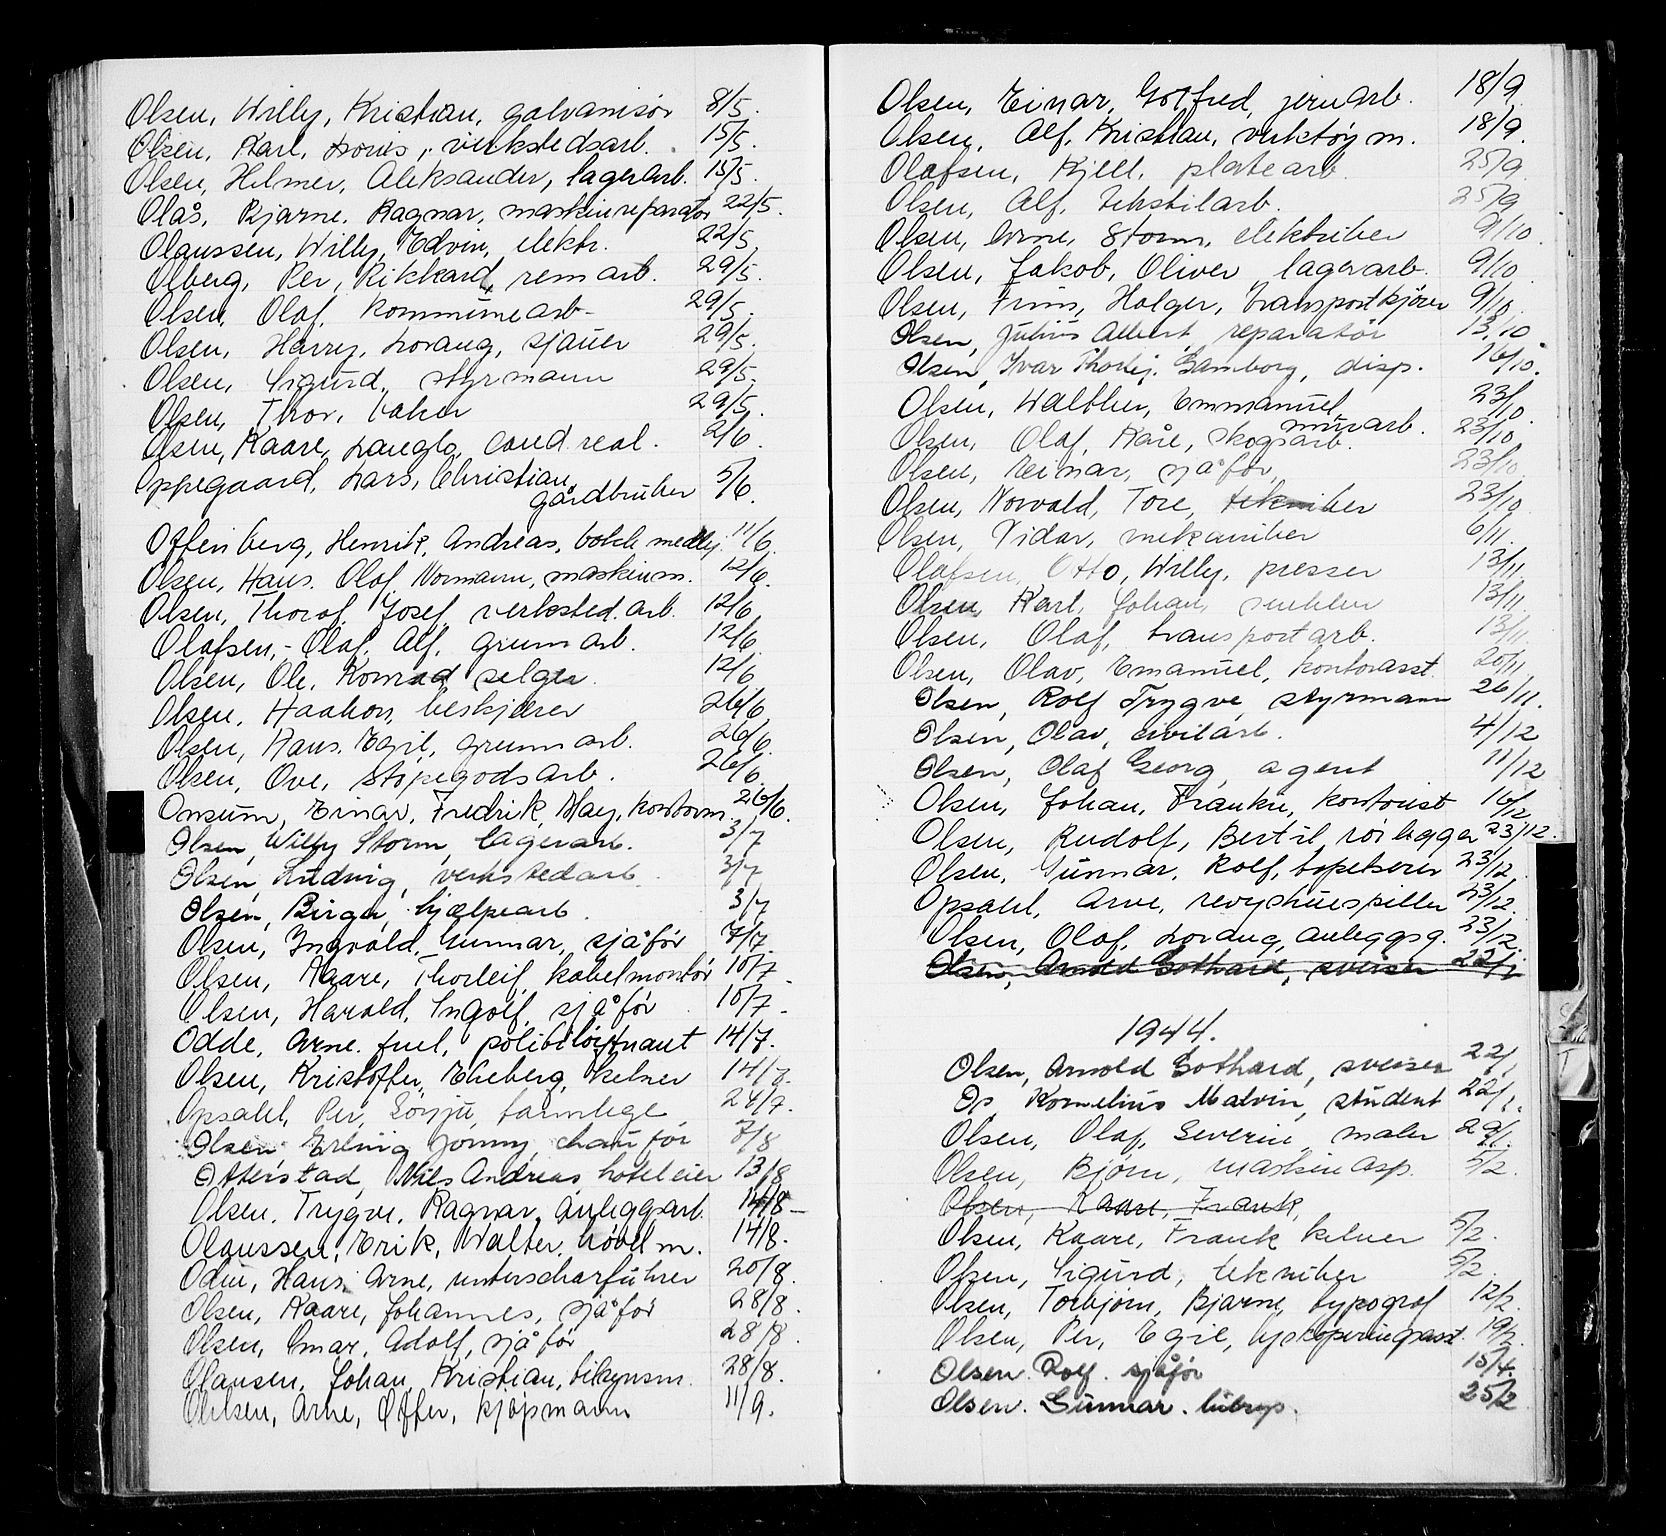 Olsen, Willy, Kristian, galvanisør 8/5.
Olsen, Karl, Lovis, verkstedsarb. 15/5.
Olsen, Hilmer, Aleksander, lagerarb. 15/5.
Olås, Bjarne, Ragnar, maskinreparatør 22/5.
Olaussen, Willy, Edvin, elektr. 22/5.
Olberg, Per, Rikkard, remarb. 29/5.
Olsen, Olaf, kommunearb. 29/5.
Olsen, Harry, Lorang, sjauer 29/5.
Olsen, Sigurd, styrmann 29/5.
Olsen, Thor, baker 29/5.
Olsen, Kaare, Langlo, cand. real. 2/6.
Oppegaard, Lars, Christian,
gårdbruker 5/6.
Offenberg, Henrik, Andreas, 11/6.
Olsen, Hans, Olaf, Normann, maskinm. 12/6.
Olsen, Thorof, Josef, verksted.arb. 12/6
Olafsen, - Olaf, Alf, grunnarb. 12/6.
Olsen, Ole, Konrad, selger. 12/6
Olsen, Haakon, beskjærer 26/6
Olsen, Hans, Egil, grunnarb. 26/6.
Olsen, Ove, støpegodsarb. 26/6.
Onsum, Einar, Fredrik, May, kontorm. 26/6.
Olsen, Willy Storm, lagerarb. 3/7
Olsen, Ludvig, verkstedarb. 3/7
Olsen, Birger, hjælpearb. 3/7
Olsen, Ingvald, Gunnar, sjåfør 7/7.
Olsen, Kaare, Thorleif, kabelmontør 10/7.
Olsen, Harald, Ingolf, sjåfør 10/7.
Odde, Arne, Juel, politiløitnant 14/7.
Olsen, Kristoffer, Ekeberg, kelner 14/7.
Opsahl, Per, tannlege 24/7.
Olsen, Erling Jonny, chaufför 7/8
Otterstad, Nils Andreas, hoteleier 13/8
Olsen, Trygve, Ragnar, anleggsarb. 14/8 -
Olaussen, Erik, Walter, høvelm. 14/8.
Odin, Hans, Arne, unterscharführer 20/8.
Olsen, Kaare, Johannes, sjåfør 28/8.
Olsen, Omar, Adolf, sjåfør 28/8.
Olausen, Johan, Kristian, tilsynsm. 28/8.
Ohlsen, Arne, Offer, kjøpmann 11/9.
Olsen, Einar, Gotfred, jernarb. 18/9
Olsen, Alf, Kristian, verktøym. 18/9.
Olafsen, Kjell, platearb. 25/9
Olsen, Alf, tekstilarb. 25/9
Olsen, Arne, Storm, elektriker 9/10.
Olsen, Jakob, Oliver, lagerarb. 9/10.
Olsen, Finn, Holger, transportkjører 9/10.
Olsen, Julius Albert, reparatør 13/10
Olsen, Ivar Thorlej. Gamborg, disp. 16/10.
Olsen, Walther, Emmanuel, 23/10.
murarb.
Olsen, Olaf, Kåre, skogsarb. 23/10
Olsen, Einar, sjåfør, 23/10
Olsen, Norvald, Tore, tekniker 23/10
Olsen, Vidar, mekaniker 6/11.
Olafsen, Otto, Willy, presser 13/11
Olsen, Karl, Johan, snekker 13/11
Olsen, Olaf, transportarb. 13/11.
Olsen, Olav, Emanuel, kontorasst. 20/11
Olsen, Rolf Trygve, styrmann 26/11.
Olsen, Olav, sivilarb. 4/12
Olsen, Olaf Georg, agent 11/12
Olsen, Johan, Frankie, kontorist 16/12
Olsen, Rudolf, Bertil, rørlegger 23/12.
Olsen, Gunnar, Rolf, tapetserer 23/12.
Opsahl, Arne, revyskuespiller 23/12.
Olsen, Olaf, Lorang, anleggsg. 23/12.
Olsen, Arnold Gothard, sveiser 22/1
1944.
Olsen, Arnold Gothard, sveiser 22/1
Os, Kornelius Malvin, student 22/1.
Olsen, Olaf, Severin, maler 29/1.
Olsen, Bjørn, maskinasp. 5/2.
Olsen, Kaare, Frank,
Olsen, Kaare, Frank, kelner 5/2.
Olsen, Sigurd, tekniker 5/2.
Olsen, Torbjørn, Bjarne, typograf 12/2.
Olsen, Per, Egil, lyskoperingsasst. 19/2.
Olsen. Rolf. sjåfør 15/4.
Olsen. Gunnar. 25/2